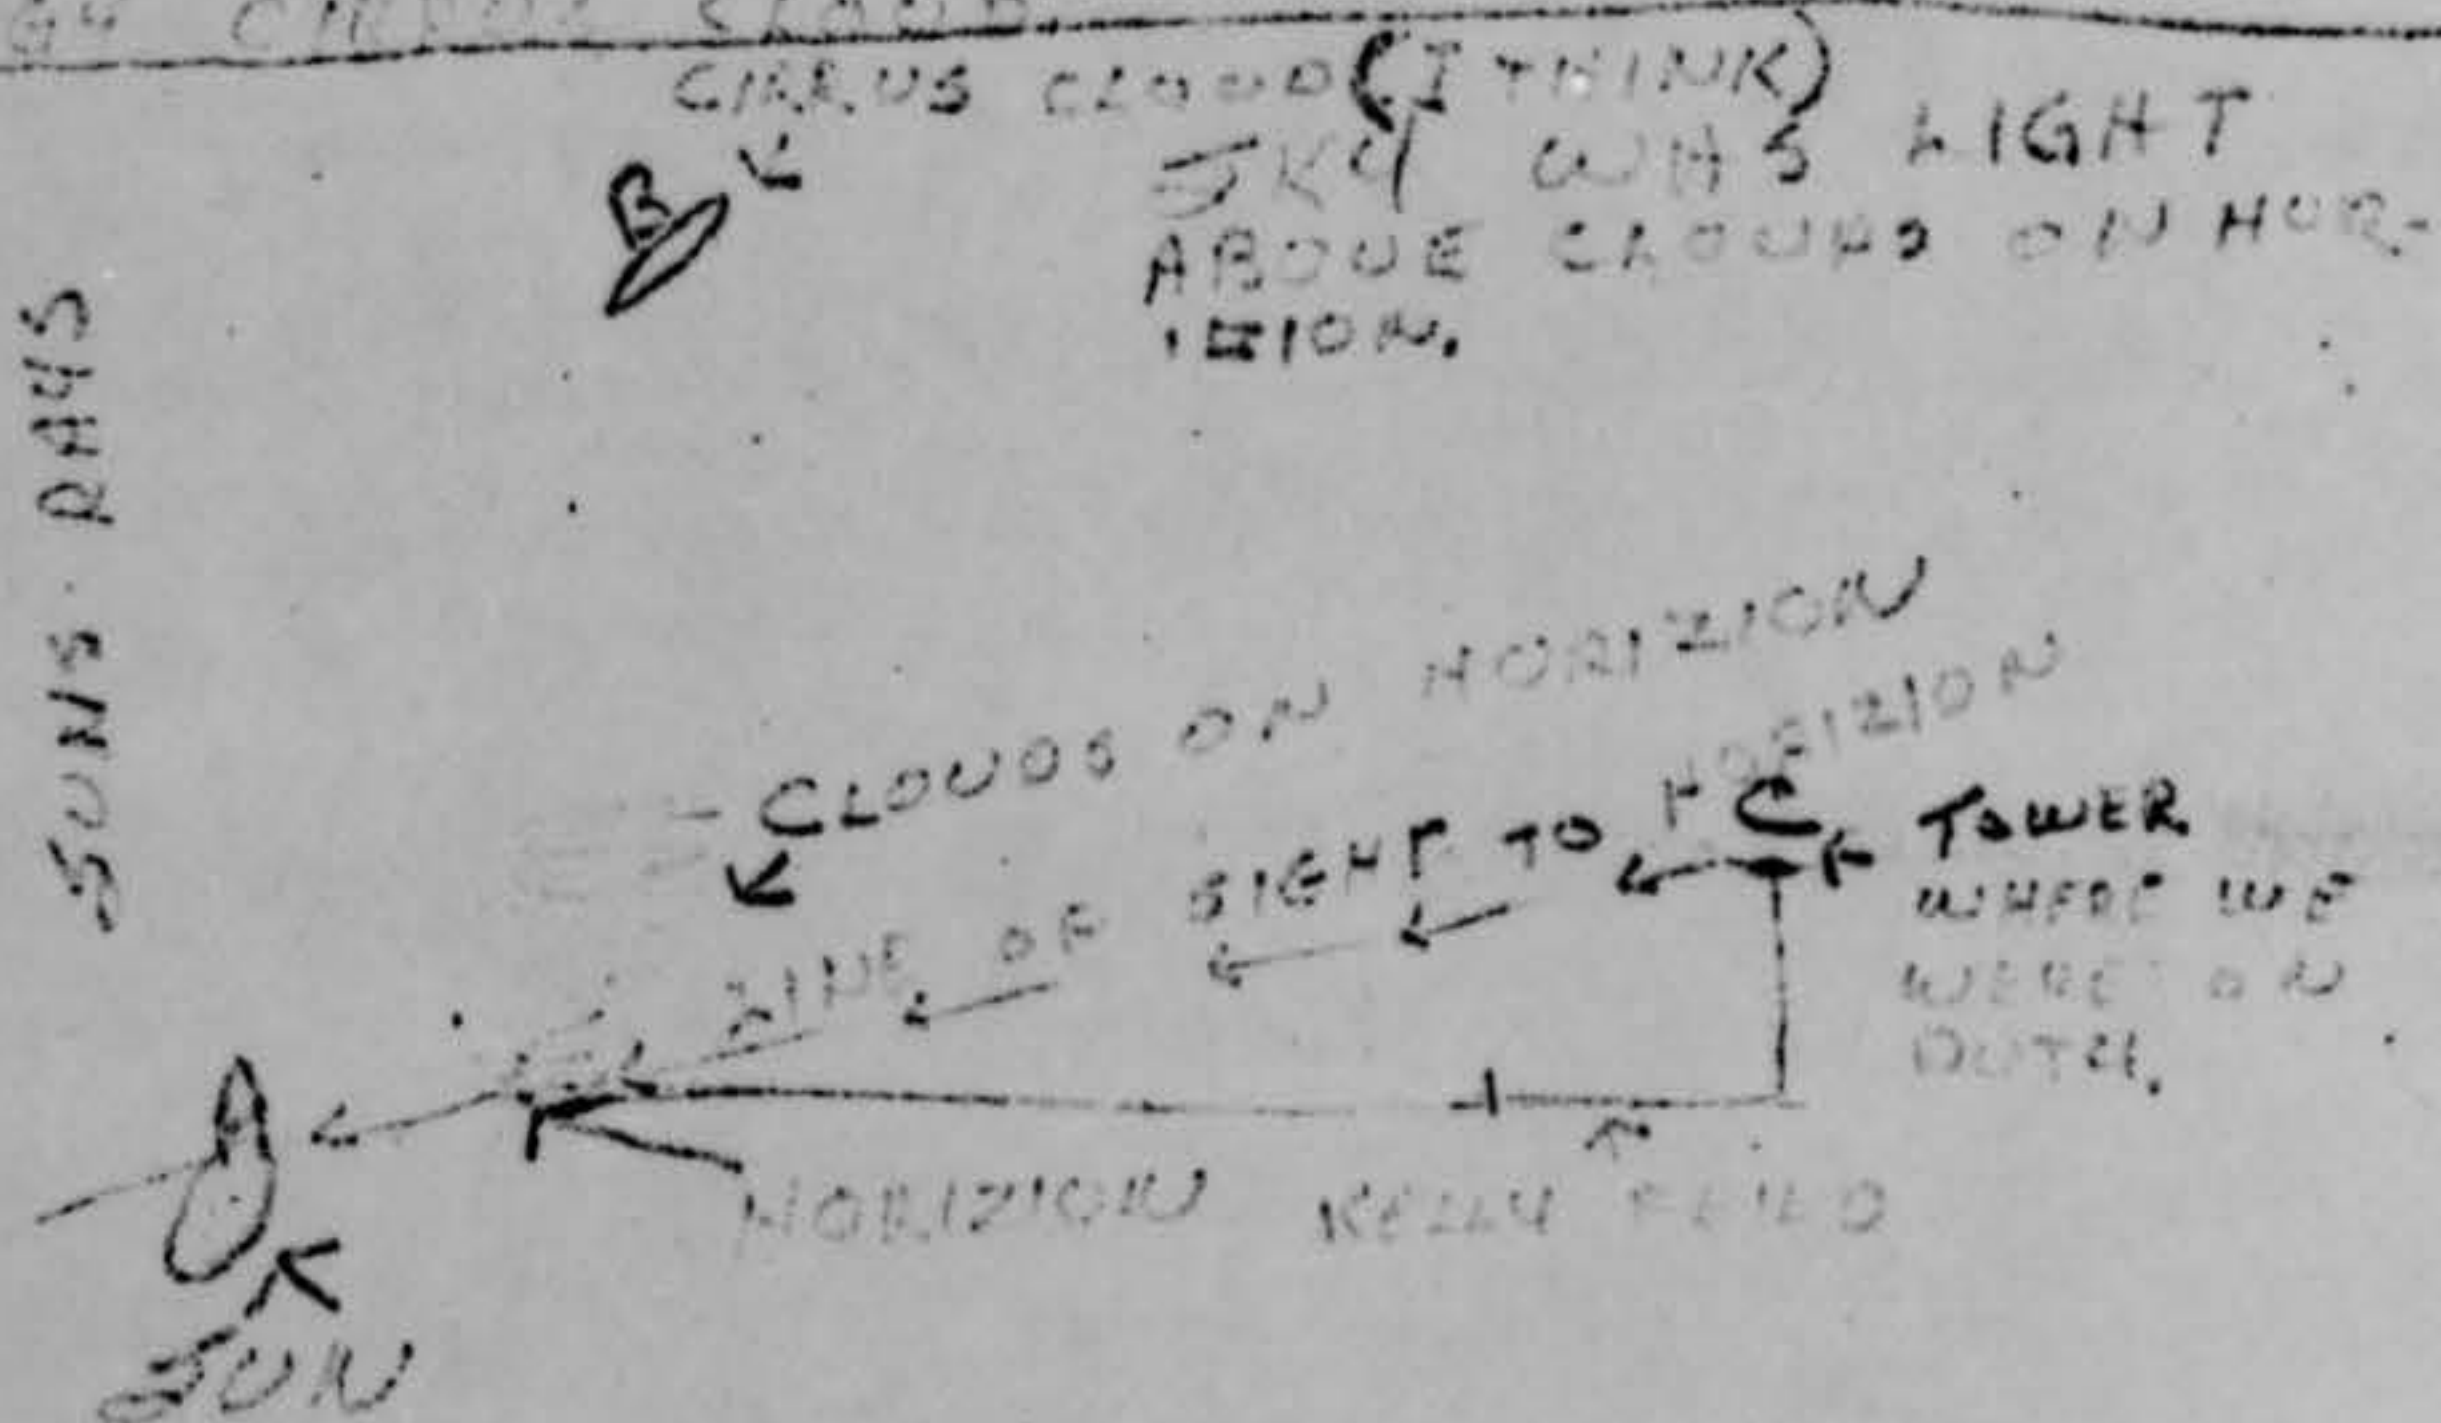 CIRRUS CLOUD
CIRRUS CLOUD (I THINK)
B
SKY WAS LIGHT
ABOVE CLOUDS ON HOR-
IZION.
SUNS RAYS
CLOUDS ON HORIZION
LINE OF SIGHT TO HORIZION
C
TOWER
WHERE WE
WERE ON
DUTY.
A
HORIZION
KELLY FEILD
SUN